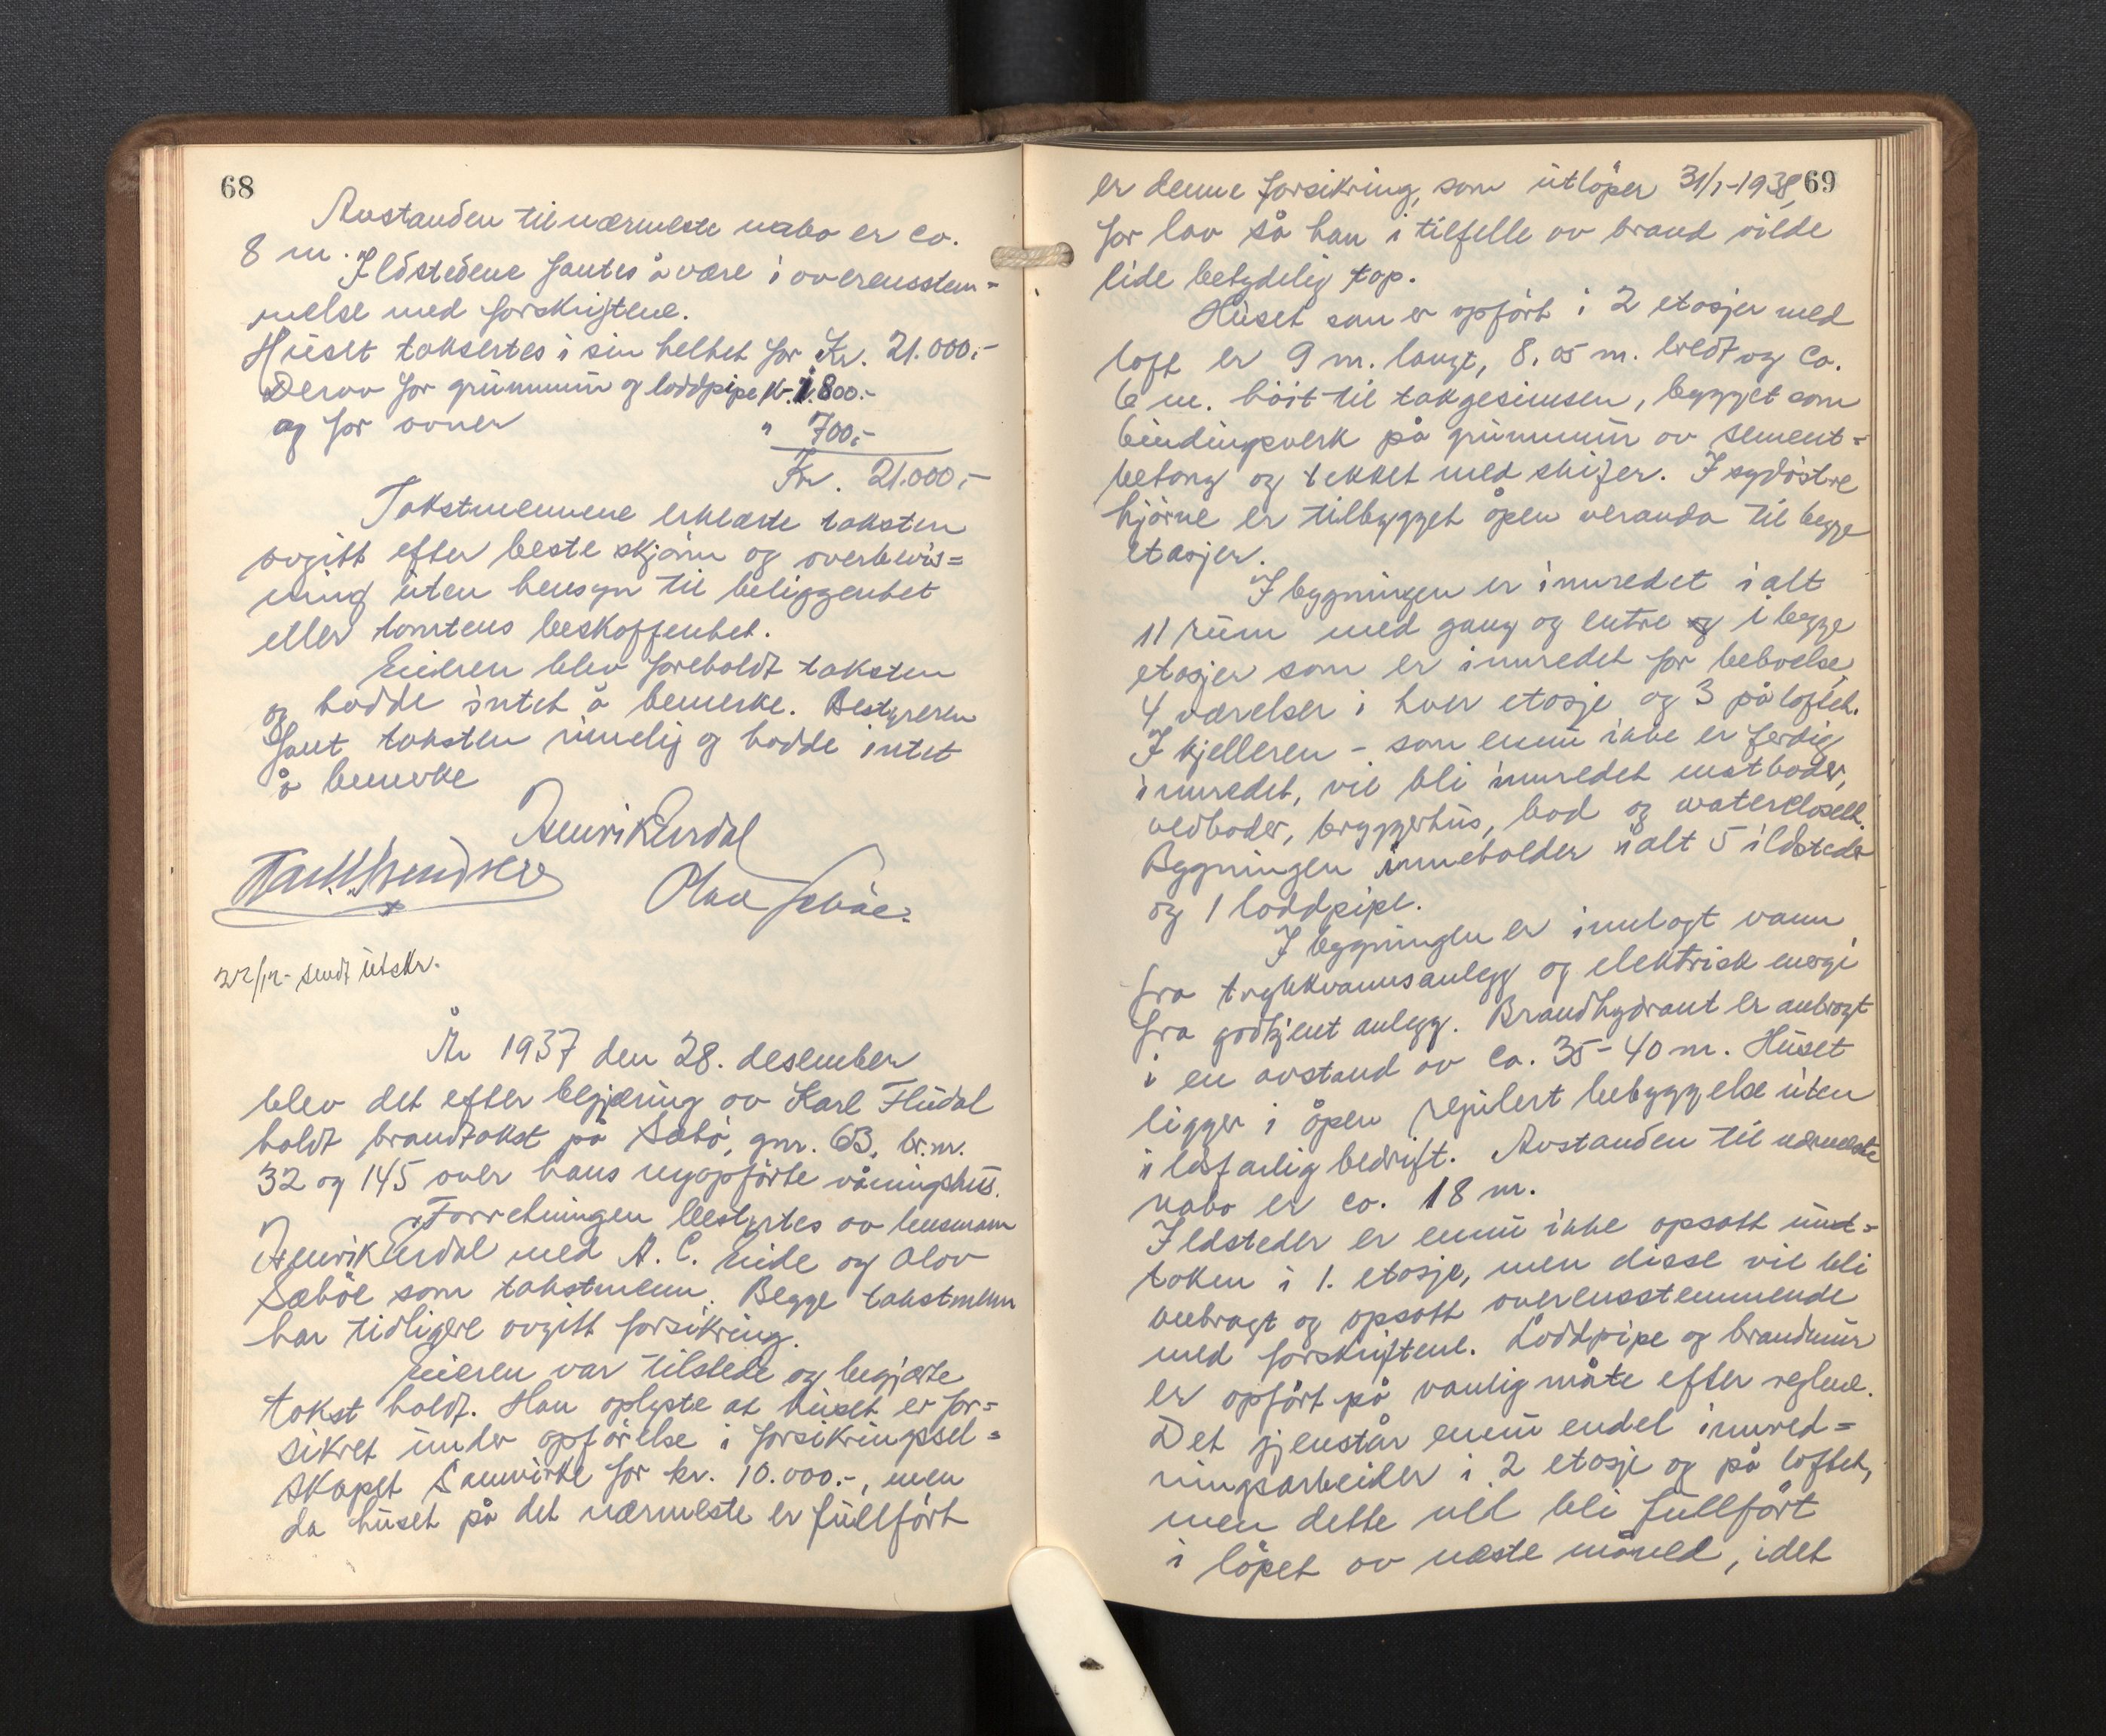 68
Avstanden til nærmeste nabo er ca.
8 m. Ildstedene fantes å være i overensstem=
melse med forskriftene.
Huset taksertes i sin helhet for Kr. 21.000,-
Derav for grunnmur og loddpipe Kr. 1.800.-
og for ovner " 700,-
Kr. 21.000,-
Takstmennene erklærte taksten
avgitt efter beste skjønn og overbevis=
ning uten hensyn til beliggenhet
eller tomtens beskaffenhet.
Eieren blev foreholdt taksten
og hadde intet å bemerke. Bestyreren
fant taksten rimelig og hadde intet
å bemerke
Henrik Erdal
Olav Sæbøe.
22/12- sendt utskr.
År 1937 den 28. desember
blev det efter begjæring av Karl Flúdal
holdt brandtakst på Sæbø, gnr. 63, br.nr.
32 og 145 over hans nyopførte våningshus.
Forretningen bestyrtes av lensmann
Henrik Erdal med A. C. Eide og Olav
Sæbøe som takstmenn. Begge takstmenn
har tidligere avgitt forsikring.
Eieren var tilstede og begjærte
takst holdt. Han oplyste at huset er for=
sikret under opførelse i forsikringssel=
skapet Samvirke for kr. 10.000.-, men
da huset på det nærmeste er fullført
69
er denne forsikring, som utløper 31/1-1938,
for lav så han i tilfelle av brand vilde
lide betydelig tap.
Huset som er opført i 2 etasjer med
loft er 9 m. langt, 8,05 m. bredt og ca.
6 m. høit til takgesimsen, bygget som
bindingsverk på grunnmur av sement=
betong og tekket med skifer. I sydøstre
hjørne er tilbygget åpen veranda til begge
etasjer.
I bygningen er innredet ialt
11 rum med gang og entre i begge
etasjer som er innredet for beboelse,
4 værelser i hver etasje og 3 på loftet.
I kjelleren - som ennu ikke er ferdig
innredet, vil bli innredet matboder,
vedboder, bryggerhus, bad og watercloset.
Bygningen inneholder ialt 5 ildsteder
og 1 loddpipe.
I bygningen er innlagt vann
fra trykkvannsanlegg og elektrisk energi
fra godkjent anlegg. Brandhydrant er anbragt
i en avstand av ca. 35-40 m. Huset
ligger i åpen regulert bebyggelse uten
ildsfarlig bedrift. Avstanden til nærmeste
nabo er ca. 18 m.
Ildsteder er ennu ikke opsatt unt=
taken i 1. etasje, men disse vil bli
anbragt og opsatt overensstemmende
med forskriftene. Loddpipe og brandmur
er opført på vanlig måte efter reglene.
Det gjenstår ennu endel innred=
ningsarbeider i 2 etasje og på loftet,
men dette vil bli fullført
i løpet av næste måned, idet